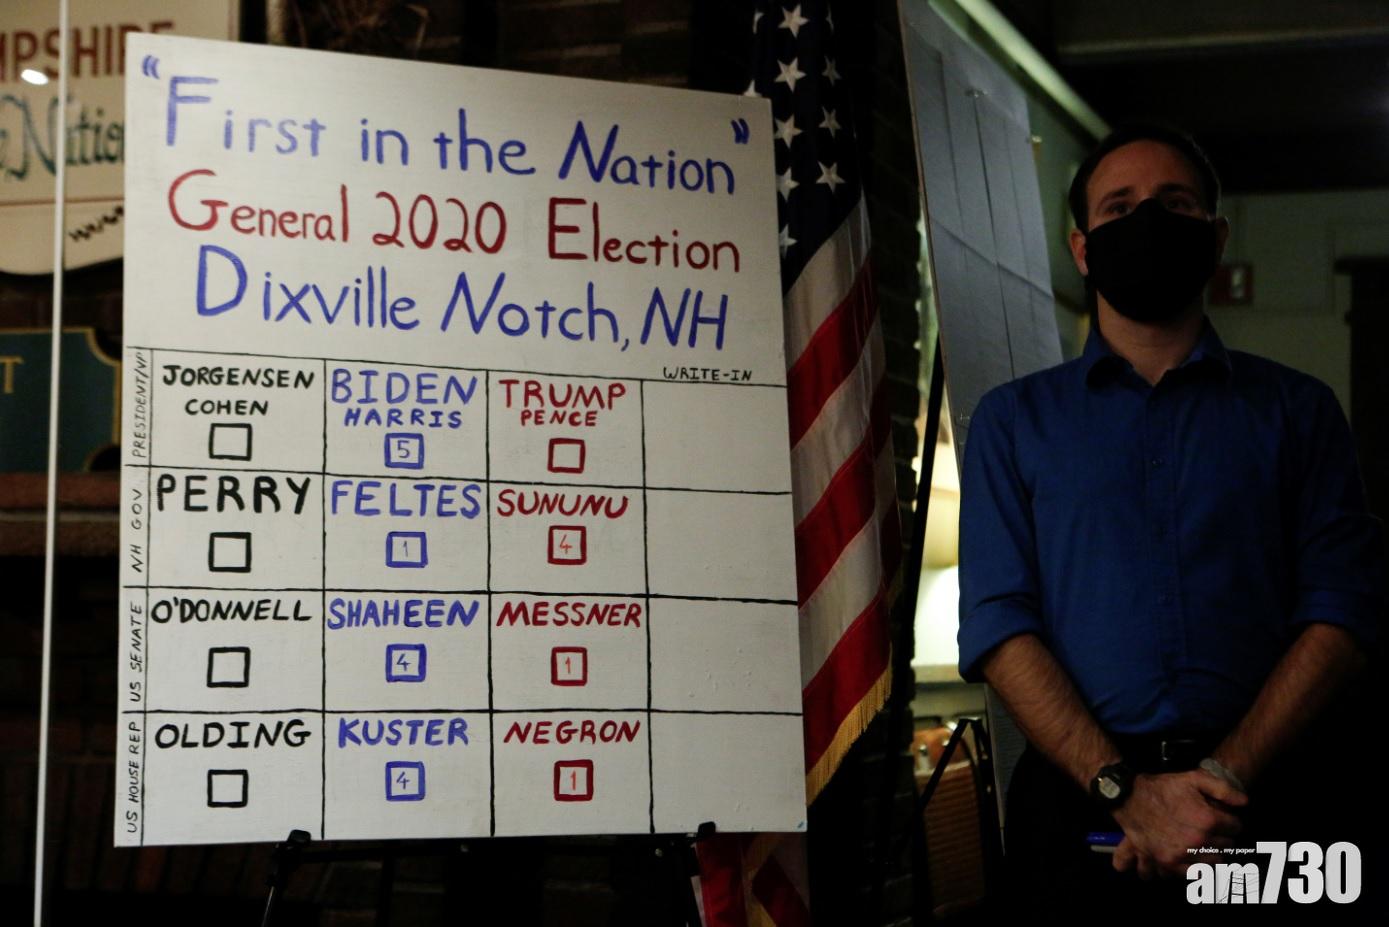 MPSHIRE
Nation
"First in the Nation"
General 2020 Election
Dixville Notch, NH
WRITE-IN
PRESIDENT/VP
JORGENSEN
COHEN
BIDEN
HARRIS
5
TRUMP
PENCE
NH GOV.
PERRY
FELTES
1
SUNUNU
4
US SENATE
O'DONNELL
SHAHEEN
4
MESSNER
1
US HOUSE REP
OLDING
KUSTER
4
NEGRON
1
T
my choice . my paper
am730